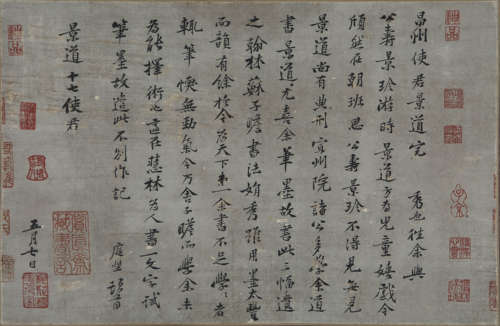 昌州使君景道宗秀也往余與
公壽景珍游時景道方為兒童嬉戲今
頎然在朝班思公壽景珍不得見每見
景道尚有典刑宣州院諸公多學余
書景道尤喜余筆墨故書此三幅遺
之翰林蘇子瞻書法娟秀雖用墨太豐
而韻有餘於今為天下第一余書不足學學者
輒筆愞無勁氣今乃舍子瞻而學余未
為能擇術也適在慧林為人書一文字試
筆墨故遣此不別作記 庭堅頓首
景道十七使君
五月七日